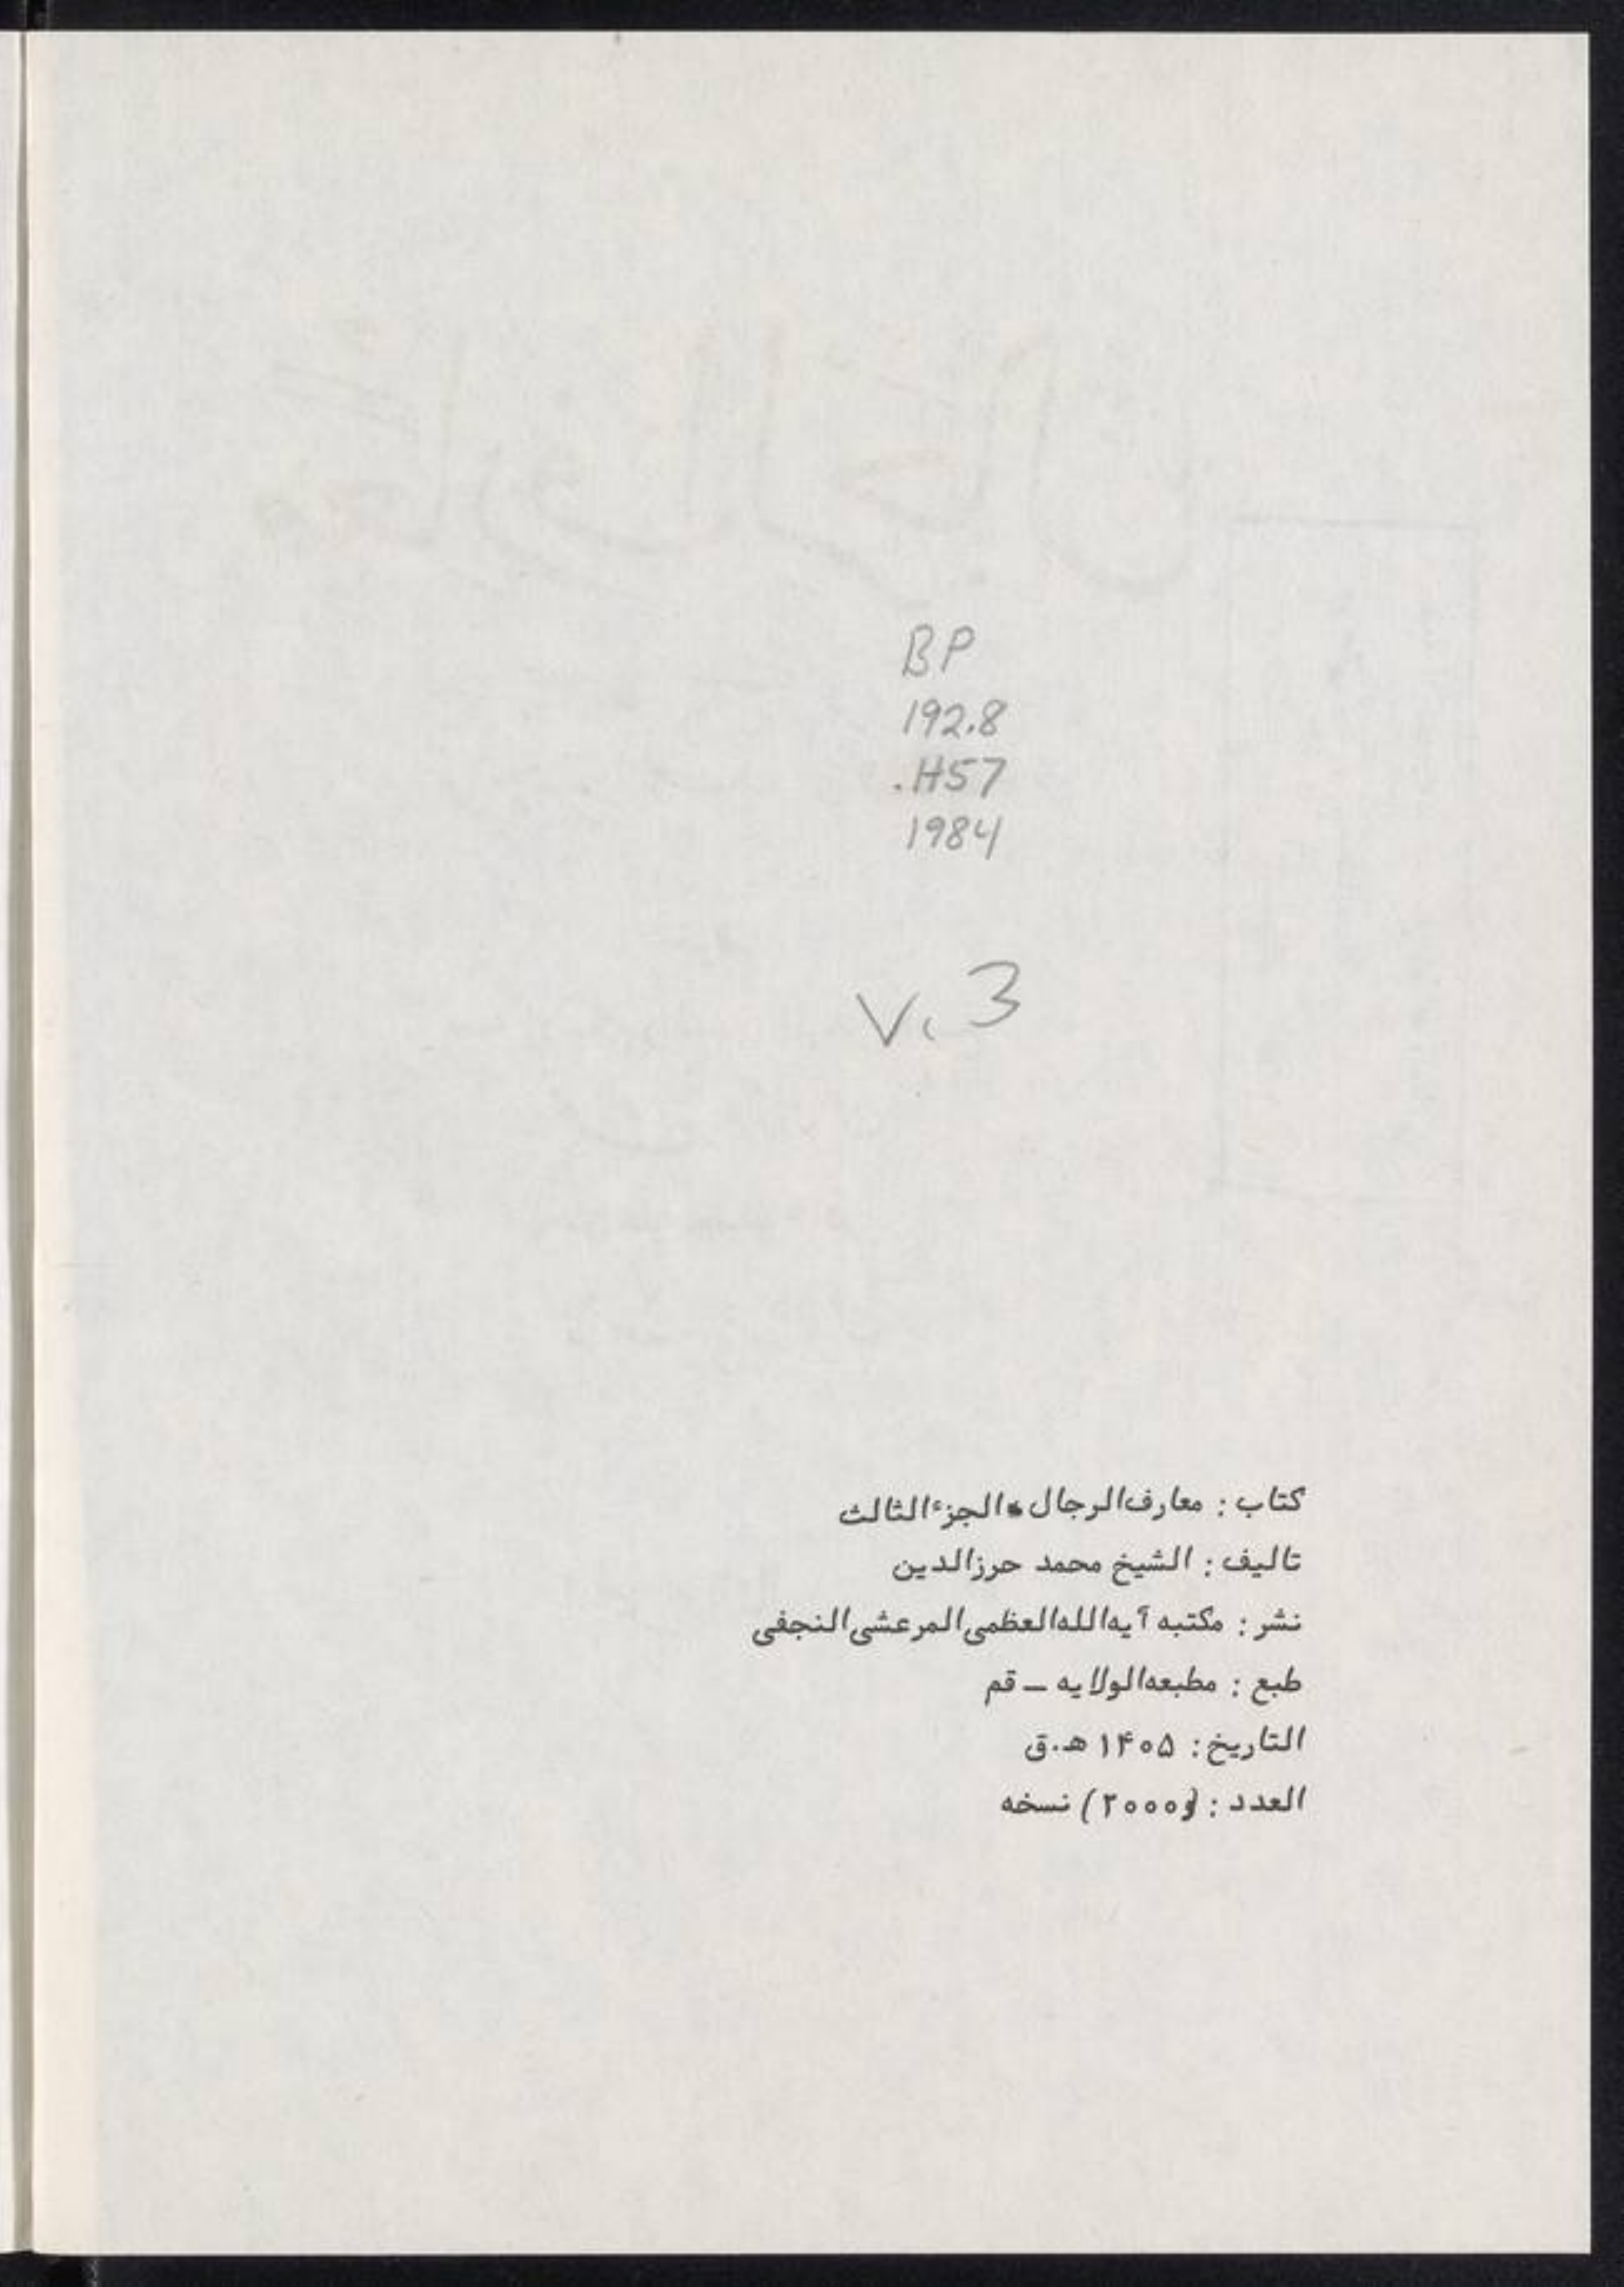 BP
192.8
.H57
1984
v. 3
کتاب : معارف‌الرجال * الجزءالثالث
تالیف : الشیخ محمد حرزالدین
نشر : مکتبه آیه‌الله‌العظمی‌المرعشی‌النجفی
طبع : مطبعه‌الولایه – قم
التاریخ : ۱۴۰۵ ه.ق
العدد : (۲۰۰۰) نسخه